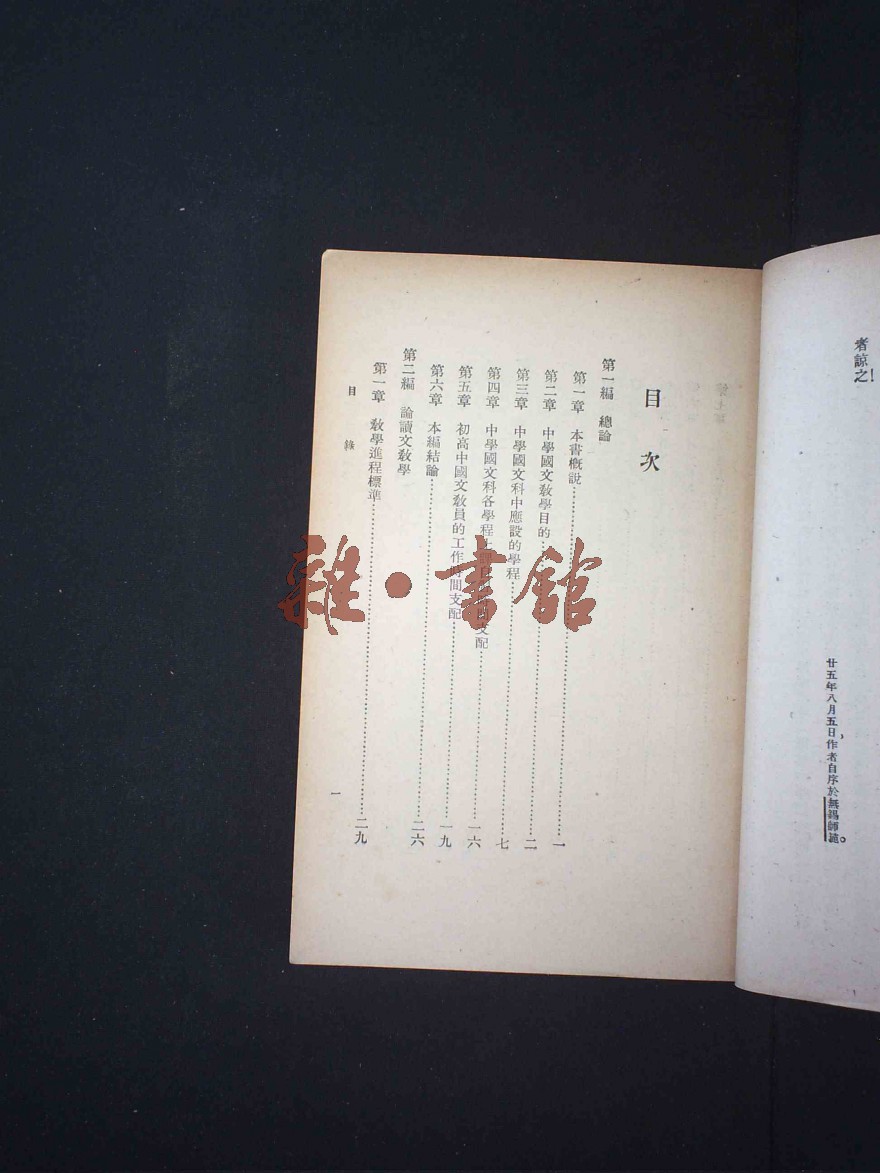 者諒之!
廿五年八月五日,作者自序於無錫師範。
目次
第一編 總論
第一章 本書概說……一
第二章 中學國文教學目的……二
第三章 中學國文科中應設的學程……七
第四章 中學國文科各學程 支配……一六
第五章 初高中國文教員的工作時間支配……一九
第六章 本編結論……二六
第二編 論讀文教學
第一章 教學進程標準……二九
目錄
一
雜·書館